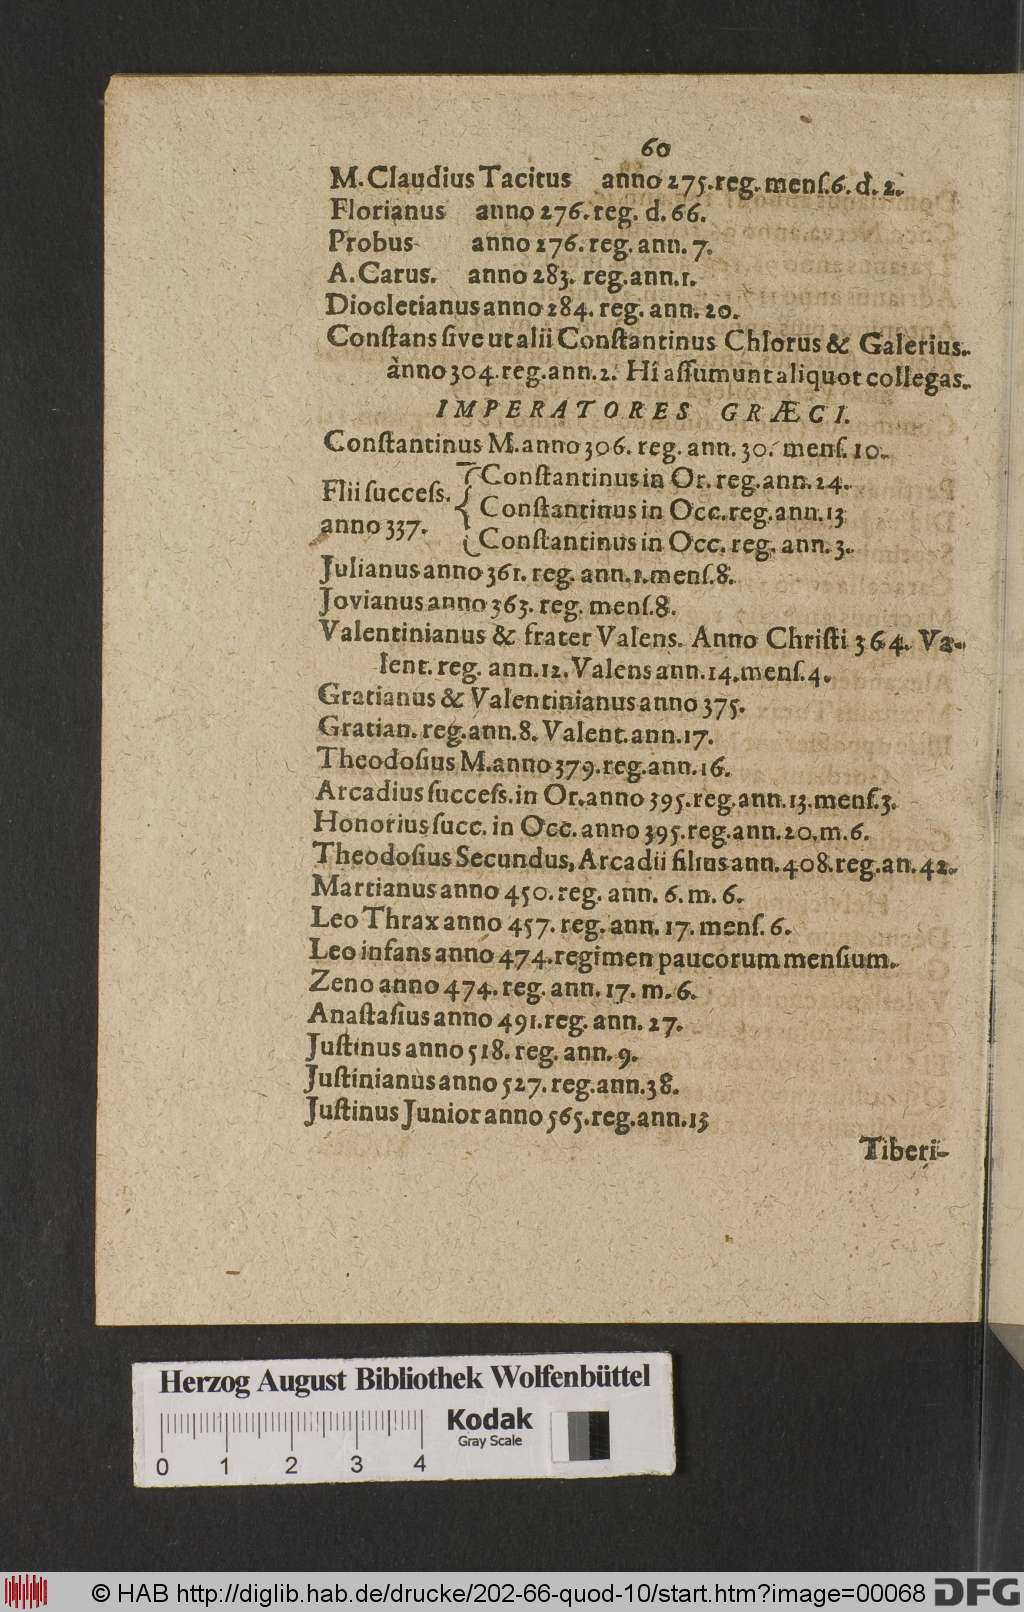 60
M. Claudius Tacitus anno 275. reg. menſ. 6. d. 2.
Florianus anno 276. reg. d. 66.
Probus anno 276. reg. ann. 7.
A. Carus. anno 283. reg. ann. 1.
Diocletianus anno 284. reg. ann. 20.
Conſtans ſive ut alii Conſtantinus Chlorus & Galerius.
ànno 304. reg. ann. 2. Hi aſſumunt aliquot collegas.
IMPERATORES GRÆCI.
Conſtantinus M. anno 306. reg. ann. 30. menſ. 10.
Flii ſucceſs. anno 337.
Conſtantinus in Or. reg. ann. 24.
Conſtantinus in Occ. reg. ann. 13
Conſtantinus in Occ. reg. ann. 3.
Julianus anno 361. reg. ann. 1. menſ. 8.
Jovianus anno 363. reg. menſ. 8.
Valentinianus & frater Valens. Anno Chriſti 364. Va-
lent. reg. ann. 12. Valens ann. 14. menſ. 4.
Gratianus & Valentinianus anno 375.
Gratian. reg. ann. 8. Valent. ann. 17.
Theodoſius M. anno 379. reg. ann. 16.
Arcadius ſucceſs. in Or. anno 395. reg. ann. 13. menſ. 3.
Honorius ſucc. in Occ. anno 395. reg. ann. 20. m. 6.
Theodoſius Secundus, Arcadii filius ann. 408. reg. an. 42.
Martianus anno 450. reg. ann. 6. m. 6.
Leo Thrax anno 457. reg. ann. 17. menſ. 6.
Leo infans anno 474. regimen paucorum menſium.
Zeno anno 474. reg. ann. 17. m. 6.
Anaſtaſius anno 491. reg. ann. 27.
Juſtinus anno 518. reg. ann. 9.
Juſtinianus anno 527. reg. ann. 38.
Juſtinus Junior anno 565. reg. ann. 13
Tiberi-
Herzog August Bibliothek Wolfenbüttel
Kodak
Gray Scale
0 1 2 3 4
© HAB http://diglib.hab.de/drucke/202-66-quod-10/start.htm?image=00068
DFG